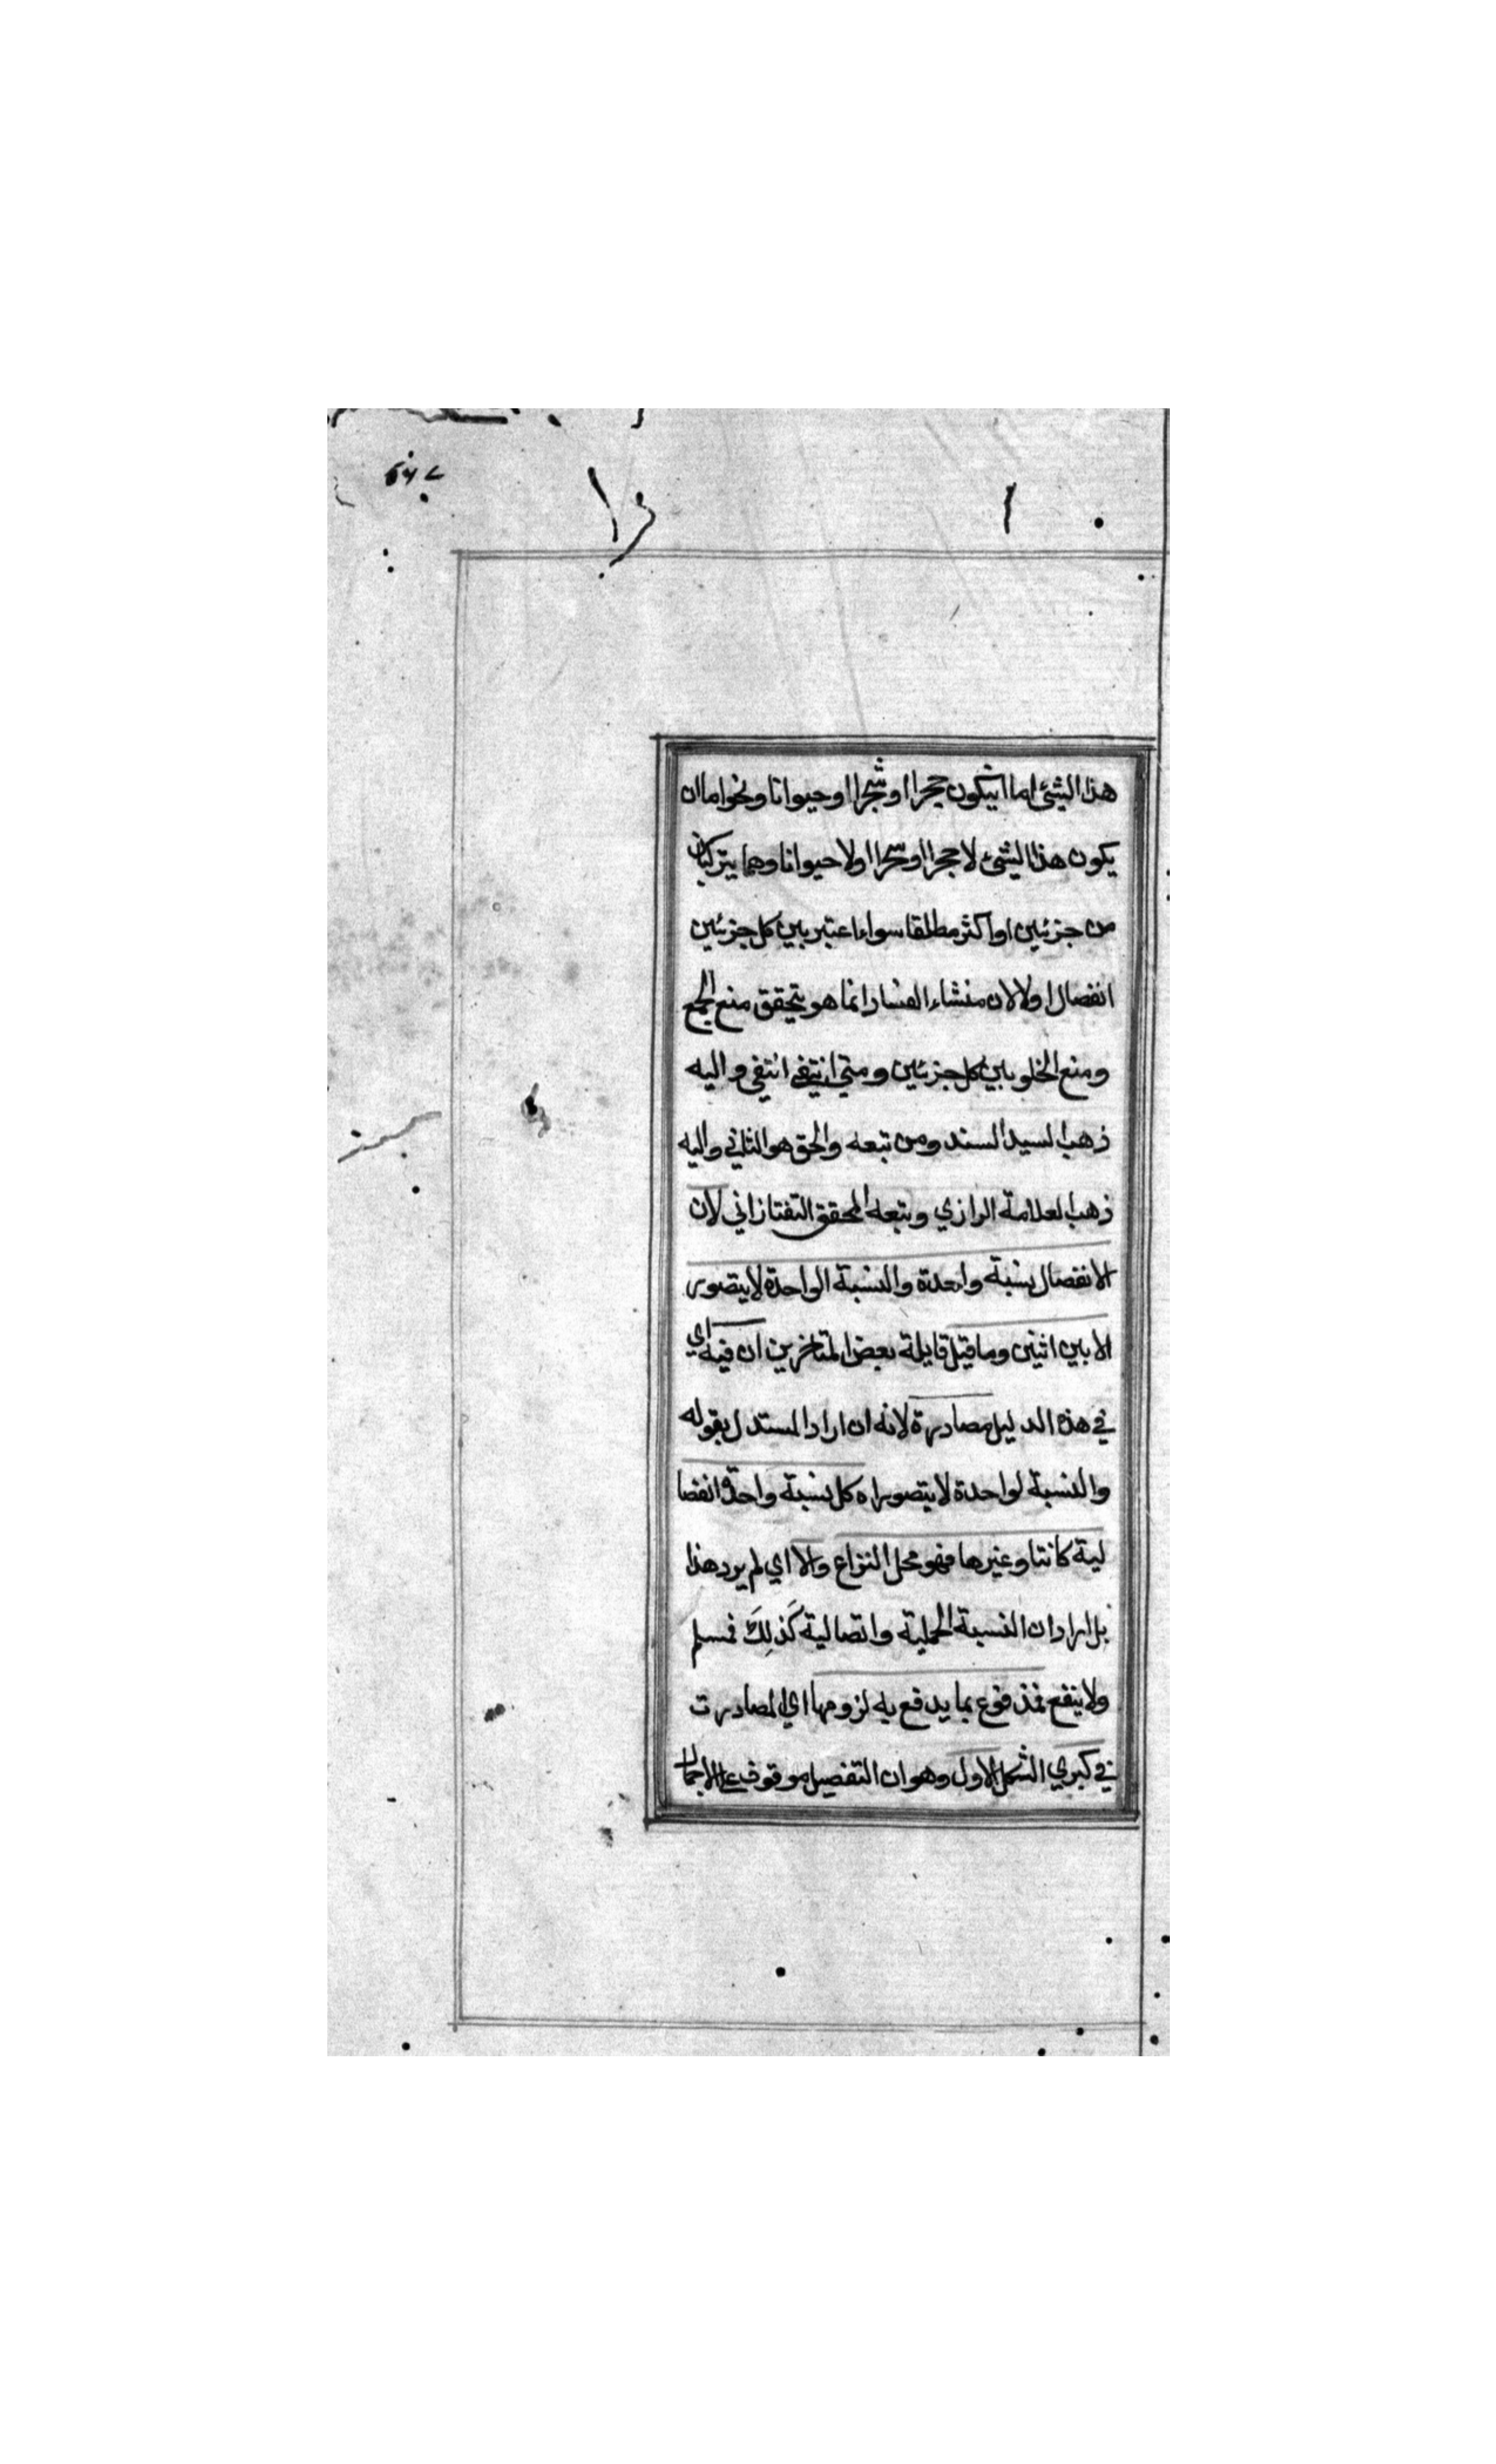 هذا الشئ اما ان يكون حجرا او شجرا او حيوانا ونحو اما ان
يكون هذا الشئ لا حجرا او شجرا او لا حيوانا وهما يتركبان
من جزئين او اكثر مطلقا سواء اعتبر بين كل جزئين
انفصال او لا لان منشاء الفساد انما هو بتحقق منع الجمع
ومنع الخلو بين كل جزئين ومتى انتفى انتفى واليه
ذهب السيد السند ومن تبعه والحق هو الثاني واليه
ذهب العلامة الرازي وتبعه المحقق التفتازاني لان
الانفصال نسبة واحدة والنسبة الواحدة لا يتصور
الا بين اثنين وما قيل قايلة بعض المتاخرين ان فيه اي
في هذا الدليل مصادرة لانه ان اراد المستدل بقوله
والنسبة الواحدة لا يتصور اه كل نسبة واحدة انفصا
لية كانت او غيرها فهو محل النزاع والا اي لم يرد هذا
بل اراد ان النسبة الحملية واتصالية كَذلِكَ فمسلم
ولا ينفع فمدفوع بما يدفع به لزومها اي المصادرت
في كبرى الشكل الاول وهو ان التفصيل موقوف على الاجمال